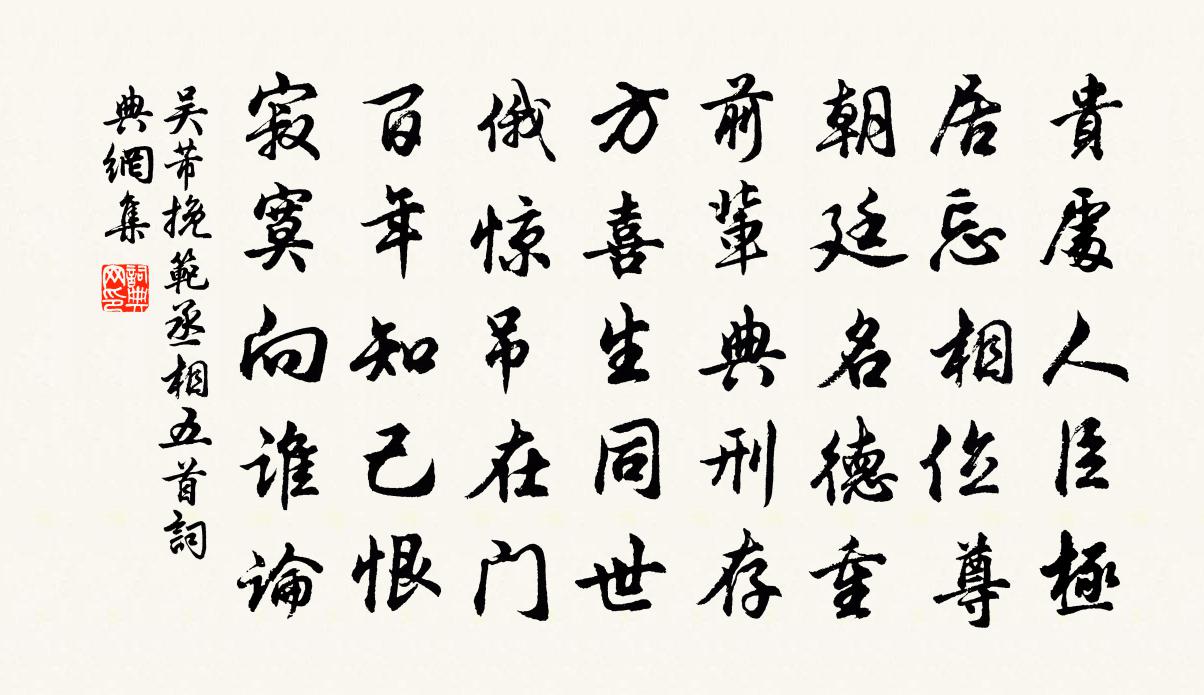 貴處人臣極
居忘相位尊
朝廷名德重
前輩典刑存
方喜生同世
俄惊吊在门
百年知己恨
寂寞向谁论
吴芾挽範丞相五首詞
典網集
詞典
网印